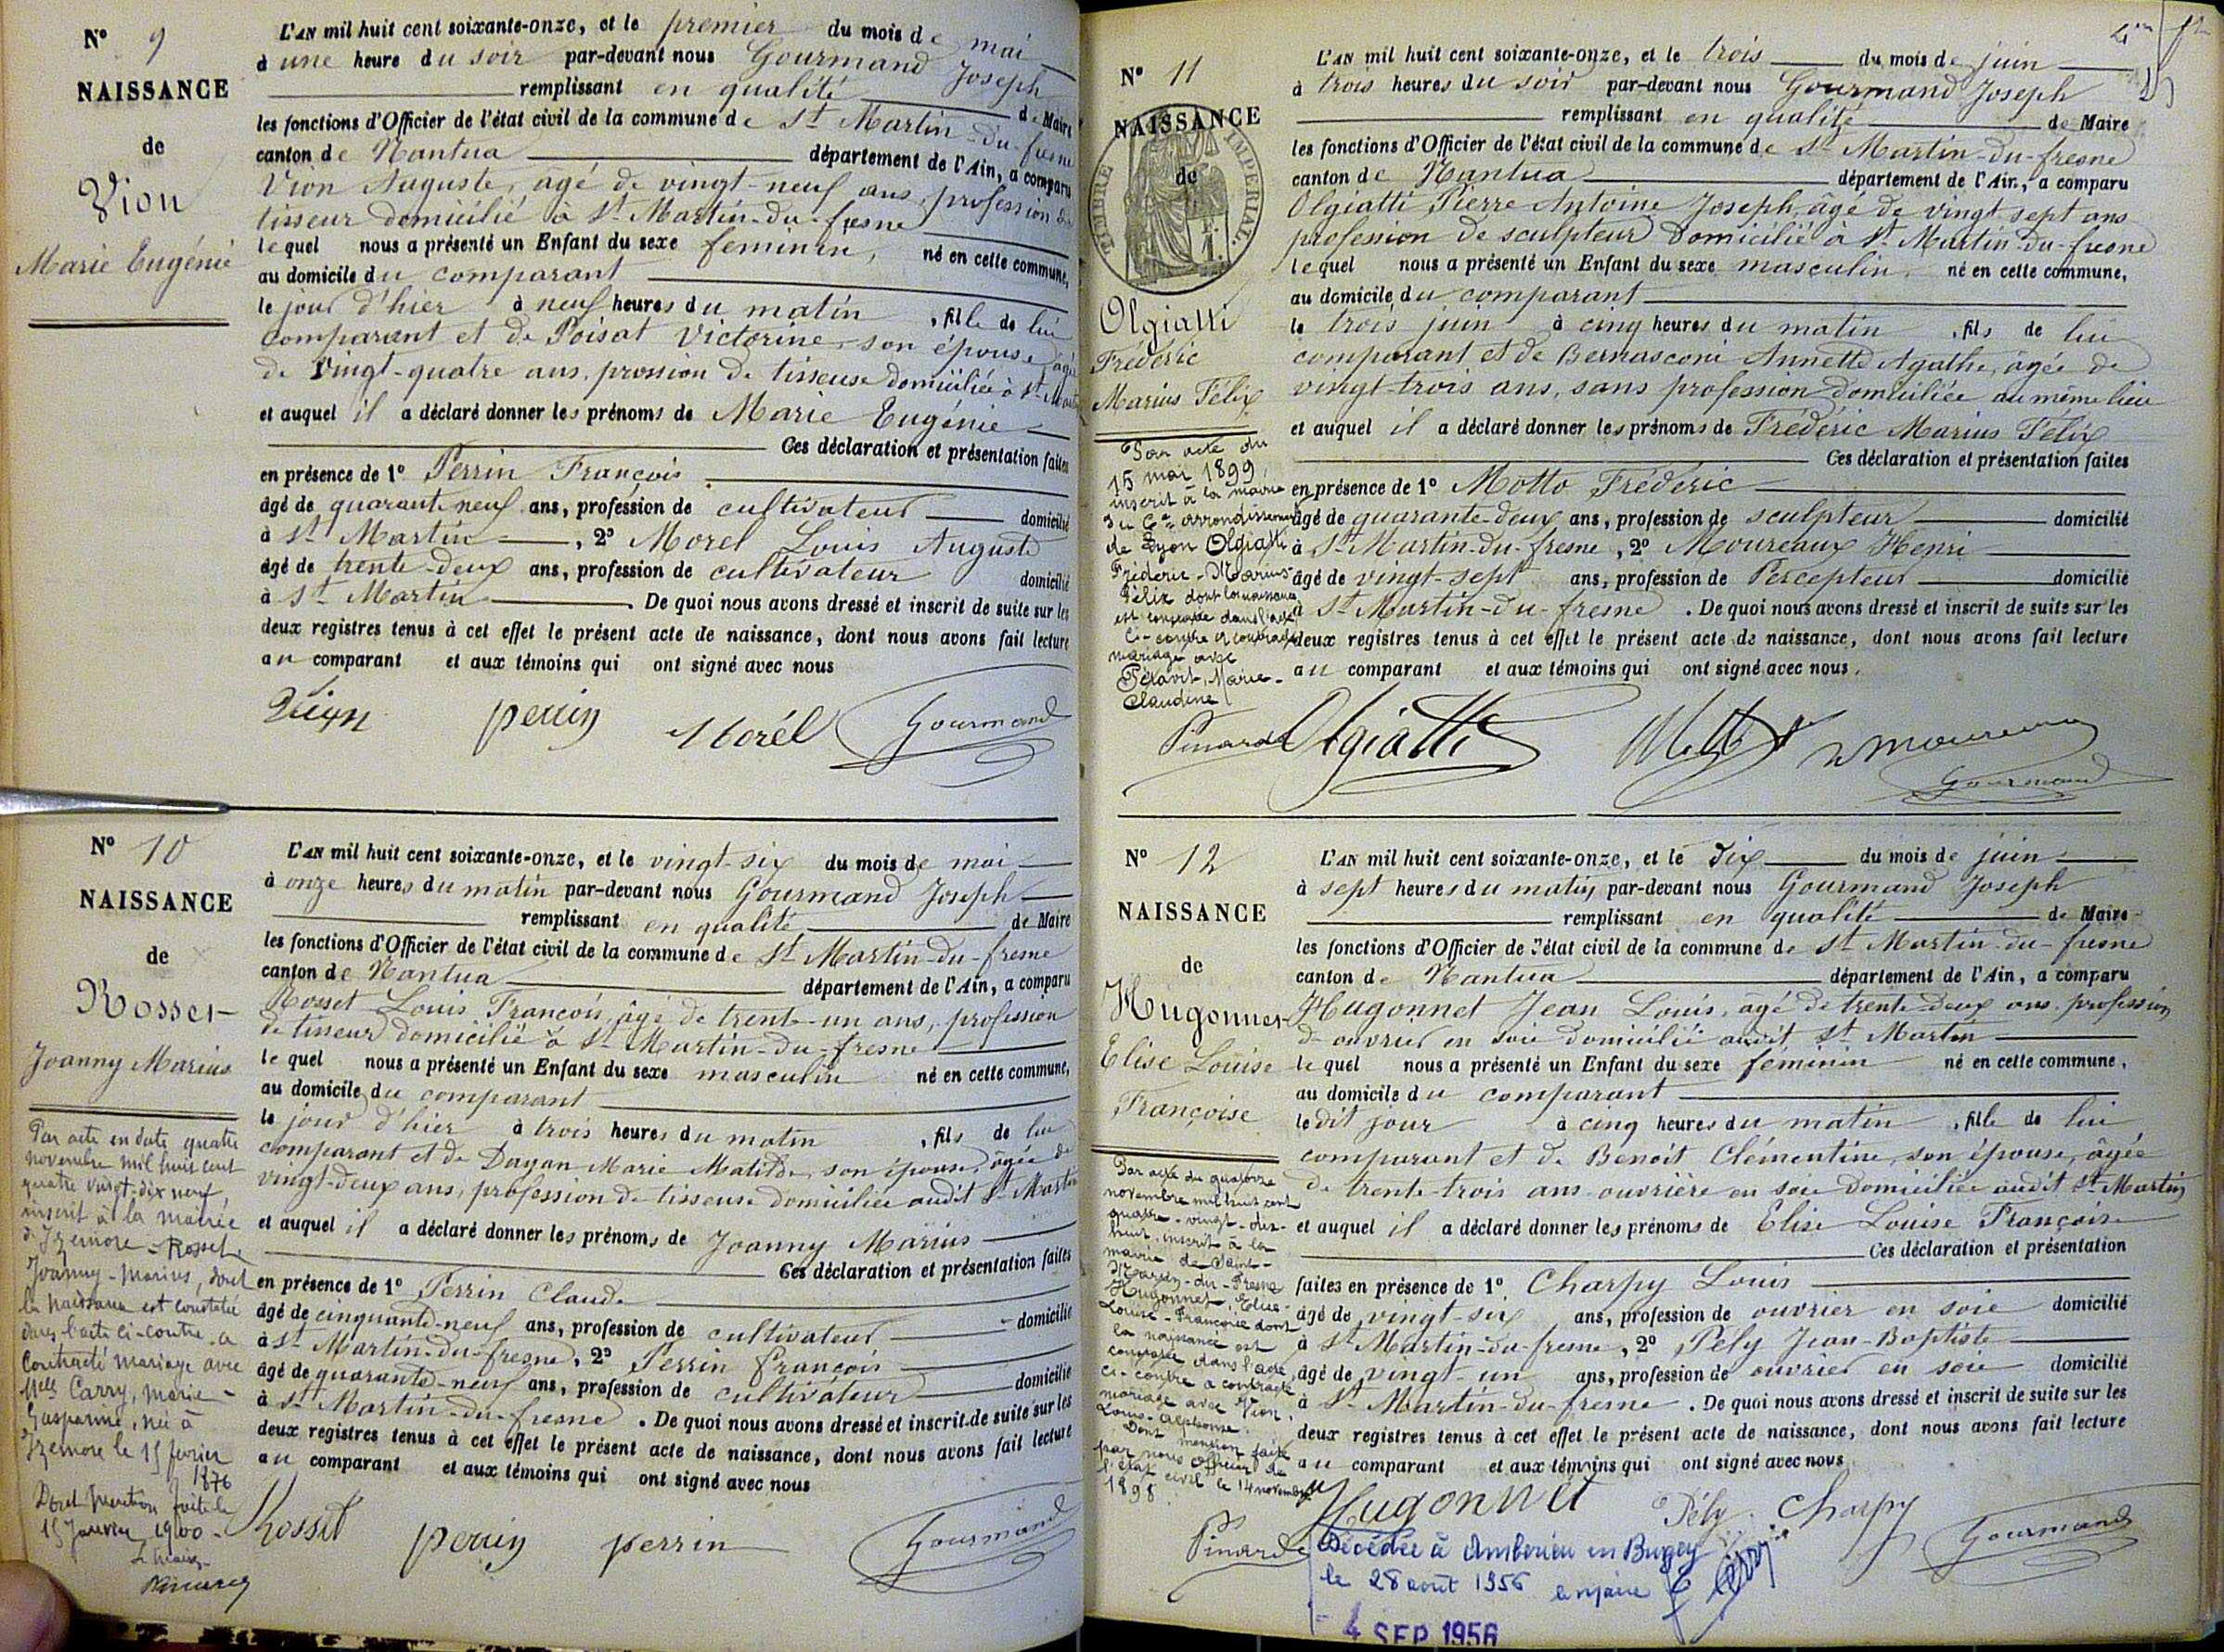 N° 9
NAISSANCE
de
Vion
Marie Eugénie
L'AN mil huit cent soixante-onze, et le premier du mois de mai
à une heure du soir par-devant nous Gourmand Joseph
remplissant en qualité de Maire
les fonctions d'Officier de l'état civil de la commune de St Martin-du-fresne
canton de Nantua département de l'Ain, a comparu
Vion Auguste, agé de vingt-neuf ans, profession de
tisseur domicilié à St Martin-du-fresne
lequel nous a présenté un Enfant du sexe feminin, né en cette commune,
au domicile du comparant
le jour d'hier à neuf heures du matin, fille de lui
comparant et de Poisat Victorine son épouse, âgée
de vingt-quatre ans, prossion de tisseuse domiciliée à St-Martin
et auquel il a déclaré donner les prénoms de Marie Eugénie
Ces déclaration et présentation faites
en présence de 1° Perrin François
âgé de quarante-neuf ans, profession de cultivateur domicilié
à St Martin, 2° Morel Louis Auguste
âgé de trente-deux ans, profession de cultivateur domicilié
à St Martin. De quoi nous avons dressé et inscrit de suite sur les
deux registres tenus à cet effet le présent acte de naissance, dont nous avons fait lecture
au comparant et aux témoins qui ont signé avec nous
Vion perrin Morél Gourmand
N° 10
NAISSANCE
de
Rosset
Joanny Marius
Par acte en date quatre
novembre mil huit cent
quatre vingt-dix neuf,
inscrit à la mairie
d'Izernore - Rosset
Joanny-Marius, dont
la naissance est constatée
dans l'acte ci-contre a
contracté mariage avec
Melle Carry, Marie-
Gasparine, née à
Izernore le 15 février
1876
Dont mention faite le
15 Janvier 1900 -
Le Maire
L'AN mil huit cent soixante-onze, et le vingt-six du mois de mai
à onze heures du matin par-devant nous Gourmand Joseph
remplissant en qualité de Maire
les fonctions d'Officier de l'état civil de la commune de St Martin-du-fresne
canton de Nantua département de l'Ain, a comparu
Rosset Louis François, âgé de trente-un ans, profession
de tisseur domicilié à St Martin-du-fresne
lequel nous a présenté un Enfant du sexe masculin né en cette commune,
au domicile du comparant
le jour d'hier à trois heures du matin, fils de lui
comparant et de Dagan Marie Matilde, son épouse, âgée de
vingt-deux ans, profession de tisseuse domiciliée audit St Martin
et auquel il a déclaré donner les prénoms de Joanny Marius
Ces déclaration et présentation faites
en présence de 1° Perrin Claude
âgé de cinquante-neuf ans, profession de cultivateur domicilié
à St Martin-du-fresne, 2° Perrin François
âgé de quarante-neuf ans, profession de cultivateur domicilié
à St Martin-du-fresne. De quoi nous avons dressé et inscrit de suite sur les
deux registres tenus à cet effet le présent acte de naissance, dont nous avons fait lecture
au comparant et aux témoins qui ont signé avec nous
Rosset perrin perrin Gourmand
N° 11
TIMBRE IMPERIAL.
NAISSANCE
de
Olgiatti
Frédéric
Marius Félix
Par acte du
15 mai 1899,
inscrit à la mairie
du 6me arrondissement
de Lyon Olgiatti
Fréderic-Marius-
Félix dont la naissance
est constatée dans l'acte
ci-contre a contracté
mariage avec
Pétavit, Marie-
Claudine
Pinard
L'AN mil huit cent soixante-onze, et le trois du mois de juin
à trois heures du soir par-devant nous Gourmand Joseph
remplissant en qualité de Maire
les fonctions d'Officier de l'état civil de la commune de St Martin-du-fresne
canton de Nantua département de l'Ain, a comparu
Olgiatti Pierre Antoine Joseph, âgé de vingt sept ans
profession de sculpteur domicilié à St Martin-du-fresne
lequel nous a présenté un Enfant du sexe masculin, né en cette commune,
au domicile du comparant
le trois juin à cinq heures du matin, fils de lui
comparant et de Bernasconi Annette Agathe, âgée de
vingt-trois ans, sans profession domiciliée au même lieu
et auquel il a déclaré donner les prénoms de Frédéric Marius Félix
Ces déclaration et présentation faites
en présence de 1° Motto Frédéric
âgé de quarante-deux ans, profession de sculpteur domicilié
à St Martin-du-fresne, 2° Moureaux Henri
âgé de vingt-sept ans, profession de Percepteur domicilié
à St Martin-du-fresne. De quoi nous avons dressé et inscrit de suite sur les
deux registres tenus à cet effet le présent acte de naissance, dont nous avons fait lecture
au comparant et aux témoins qui ont signé avec nous.
Olgiatti Gourmand
N° 12
NAISSANCE
de
Hugonnet
Elise Louise
Françoise
Par acte du quatorze
novembre mil huit cent
quatre-vingt-dix-
huit, inscrit à la
mairie de Saint-
Martin-du-Fresne
Hugonnet, Elise-
Louise-Françoise dont
la naissance est
constatée dans l'acte
ci-contre a contracté
mariage avec Vion,
Louis-Alphonse.
Dont mention faite
par nous officier de
l'état civil le 14 novembre
1898
Pinard
L'AN mil huit cent soixante-onze, et le dix du mois de juin
à sept heures du matin par-devant nous Gourmand Joseph
remplissant en qualité de Maire
les fonctions d'Officier de l'état civil de la commune de St Martin-du-fresne
canton de Nantua département de l'Ain, a comparu
Hugonnet Jean Louis, agé de trente-deux ans profession
de ouvrier en soie domicilié audit St Martin
lequel nous a présenté un Enfant du sexe féminin né en cette commune,
au domicile du comparant
le dit jour à cinq heures du matin, fille de lui
comparant et de Benoit Clémentine, son épouse, âgée
de trente-trois ans ouvrière en soie domiciliée audit St Martin
et auquel il a déclaré donner les prénoms de Elise Louise Françoise
Ces déclaration et présentation
faites en présence de 1° Charpy Louis
âgé de vingt-six ans, profession de ouvrier en soie domicilié
à St Martin-du-fresne, 2° Pély Jean-Baptiste
âgé de vingt-un ans, profession de ouvrier en soie domicilié
à St Martin-du-fresne. De quoi nous avons dressé et inscrit de suite sur les
deux registres tenus à cet effet le présent acte de naissance, dont nous avons fait lecture
au comparant et aux témoins qui ont signé avec nous
Hugonnet Pély Charpy Gourmand
Décédée à Ambérieu en Bugey
le 28 août 1956 le maire
- 4 SEP 1956